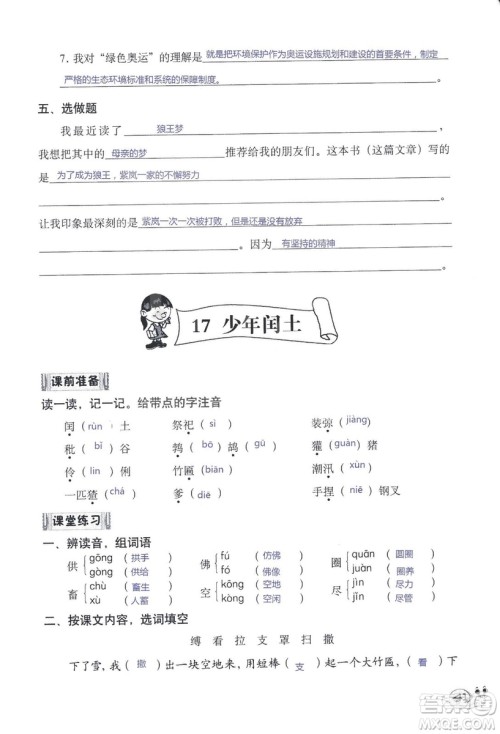 7. 我对“绿色奥运”的理解是 就是把环境保护作为奥运设施规划和建设的首要条件，制定
严格的生态环境标准和系统的保障制度。
五、选做题
我最近读了 狼王梦
我想把其中的 母亲的梦 推荐给我的朋友们。这本书（这篇文章）写的
是 为了成为狼王，紫岚一家的不懈努力
让我印象最深刻的是 紫岚一次一次被打败，但是没有放弃
。因为 有坚持的精神
。
17 少年闰土
课前准备
读一读，记一记。给带点的字注音
闰（rùn）土 祭祀（sì） 装弶（jiàng）
秕（bǐ）谷 鹁（bó）鸪（gū） 獾（guàn）猪
伶（líng）俐 竹匾（biǎn） 潮汛（xùn）
一匹猹（chá） 爹（diē） 手捏（niē）钢叉
课堂练习
一、辨读音，组词语
供 gōng（拱手） gòng（供给） 佛 fú（仿佛） fó（佛像） 圈 quān（圆圈） juàn（圈养）
畜 chù（畜生） xù（人蓄） 空 kòng（空地） kōng（空土） 尽 jìn（尽力） jǐn（尽管）
二、按课文内容，选词填空
缚 看 拉 支 罩 扫 撒
下了雪，我（撒）出一块空地来，用短棒（支）起一个大竹匾，（看）下